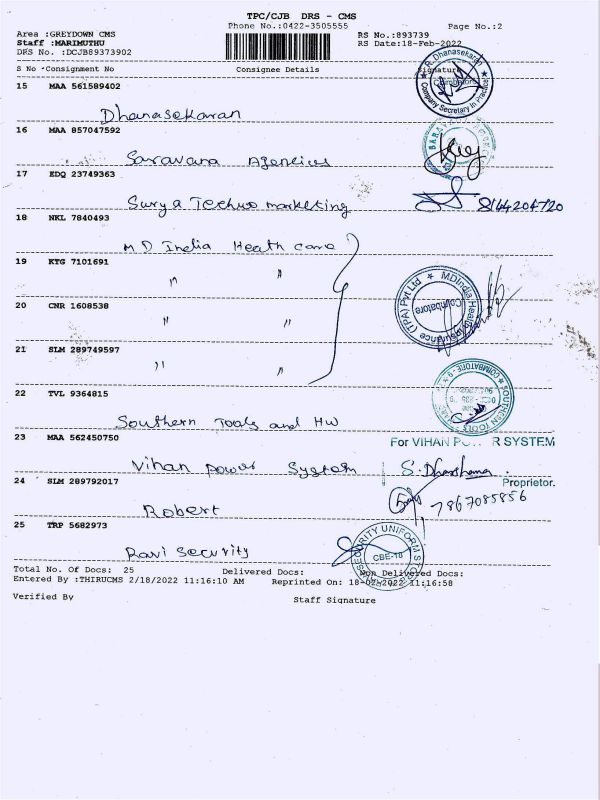 TPC/CJB DRS - CMS
Phone No.:0422-3505555
Page No.:2
Area :GREYDOWN CMS
RS No.:893739
Staff :MARIMUTHU
RS Date:18-Feb-2022
DRS No. :DCJB89373902
S No Consignment No Consignee Details Signature
15 MAA 561589402
R. Dhanasekaran
Coimbatore
Company Secretary In Practice
Dhanasekaran
16 MAA 857047592
Saravana Agencies
17 EDQ 23749363
Surya Techno marketing
8144204720
18 NKL 7840493
MD India Heath care
19 KTG 7101691
" "
MDIndia Health Insurance (TPA) Pvt Ltd
Coimbatore
20 CNR 1608538
" "
21 SLM 289749597
" "
22 TVL 9364815
SOUTHERN TOOLS
COIMBATORE - 9
Southern Tools and HW
23 MAA 562450750
For VIHAN POWER SYSTEM
Vihan power System
S. Dharshana.
Proprietor.
24 SLM 289792017
7867085856
Robert
25 TRP 5682973
SECURITY UNIFORM
CBE-18
Ravi Security
Total No. Of Docs: 25 Delivered Docs: Non Delivered Docs:
Entered By :THIRUCMS 2/18/2022 11:16:10 AM Reprinted On: 18-02-2022 11:16:58
Verified By Staff Signature